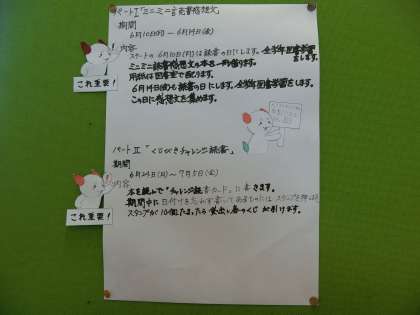 パートⅠ「ミニミニ読書感想文」
期間
6月10日(月)～6月14日(金)
内容
スタートの 6月10日(月)は読書の日にします。全学年図書学習をします。
ミニミニ読書感想文の本を一冊借ります。
用紙は図書室で配ります。
6月14日(金)も読書の日にします。全学年図書学習をします。
この日に感想文を集めます。
これ重要！
パートⅡ「くじびきチャレンジ読書」
期間
6月24日(月)～7月5日(金)
内容
本を読んで「チャレンジ読書カード」に書きます。
期間中に日付けを忘れず書いてあるものにはスタンプを押します
スタンプが10個たまったら貸出し券のくじが引けます。
これ重要！